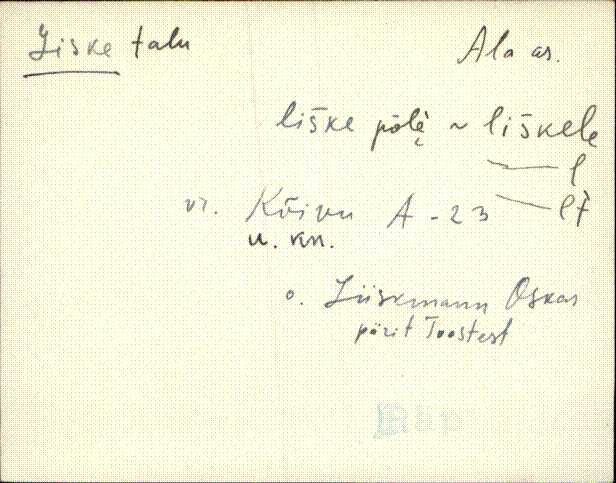 Liske talu
Ala as.
liške pōlē ~ liškele
— l
— lt
vr. Kõivu A-23
u. kn.
o. Liiskmann Oskar
pärit Toostest